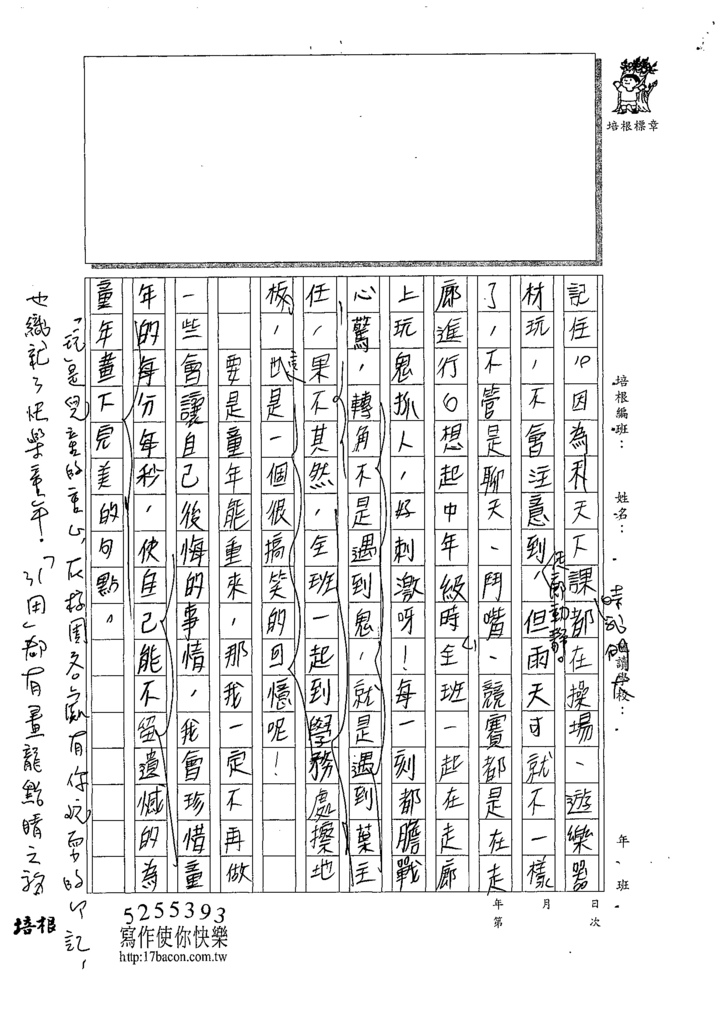 培根標章
培根編班：
姓名：
年 班
記住。因為禾天下課都在操場、遊樂器
材玩，不會注意到，但雨天可就不一樣
了，不管是聊天、鬥嘴、競賽都是在走
廊進行。想起中年級時全班一起在走廊
上玩鬼抓人，好刺激呀！每一刻都膽戰
心驚，轉角不是遇到鬼，就是遇到葉主
任，果不其然，全班一起到學務處擦地
板，也是一個很搞笑的回憶呢！
要是童年能重來，那我一定不再做
一些會讓自己後悔的事情，我會珍惜童
年的每分每秒，使自己能不留遺憾的為
童年畫下完美的句點。
「玩」是兒童的重心，在校園各處有你玩耍的印記，
也纖記了快樂童年！「引用」都有畫龍點睛之務
走廊動靜。
日 次
月
年 第
培根
5255393
寫作使你快樂
http:17bacon.com.tw